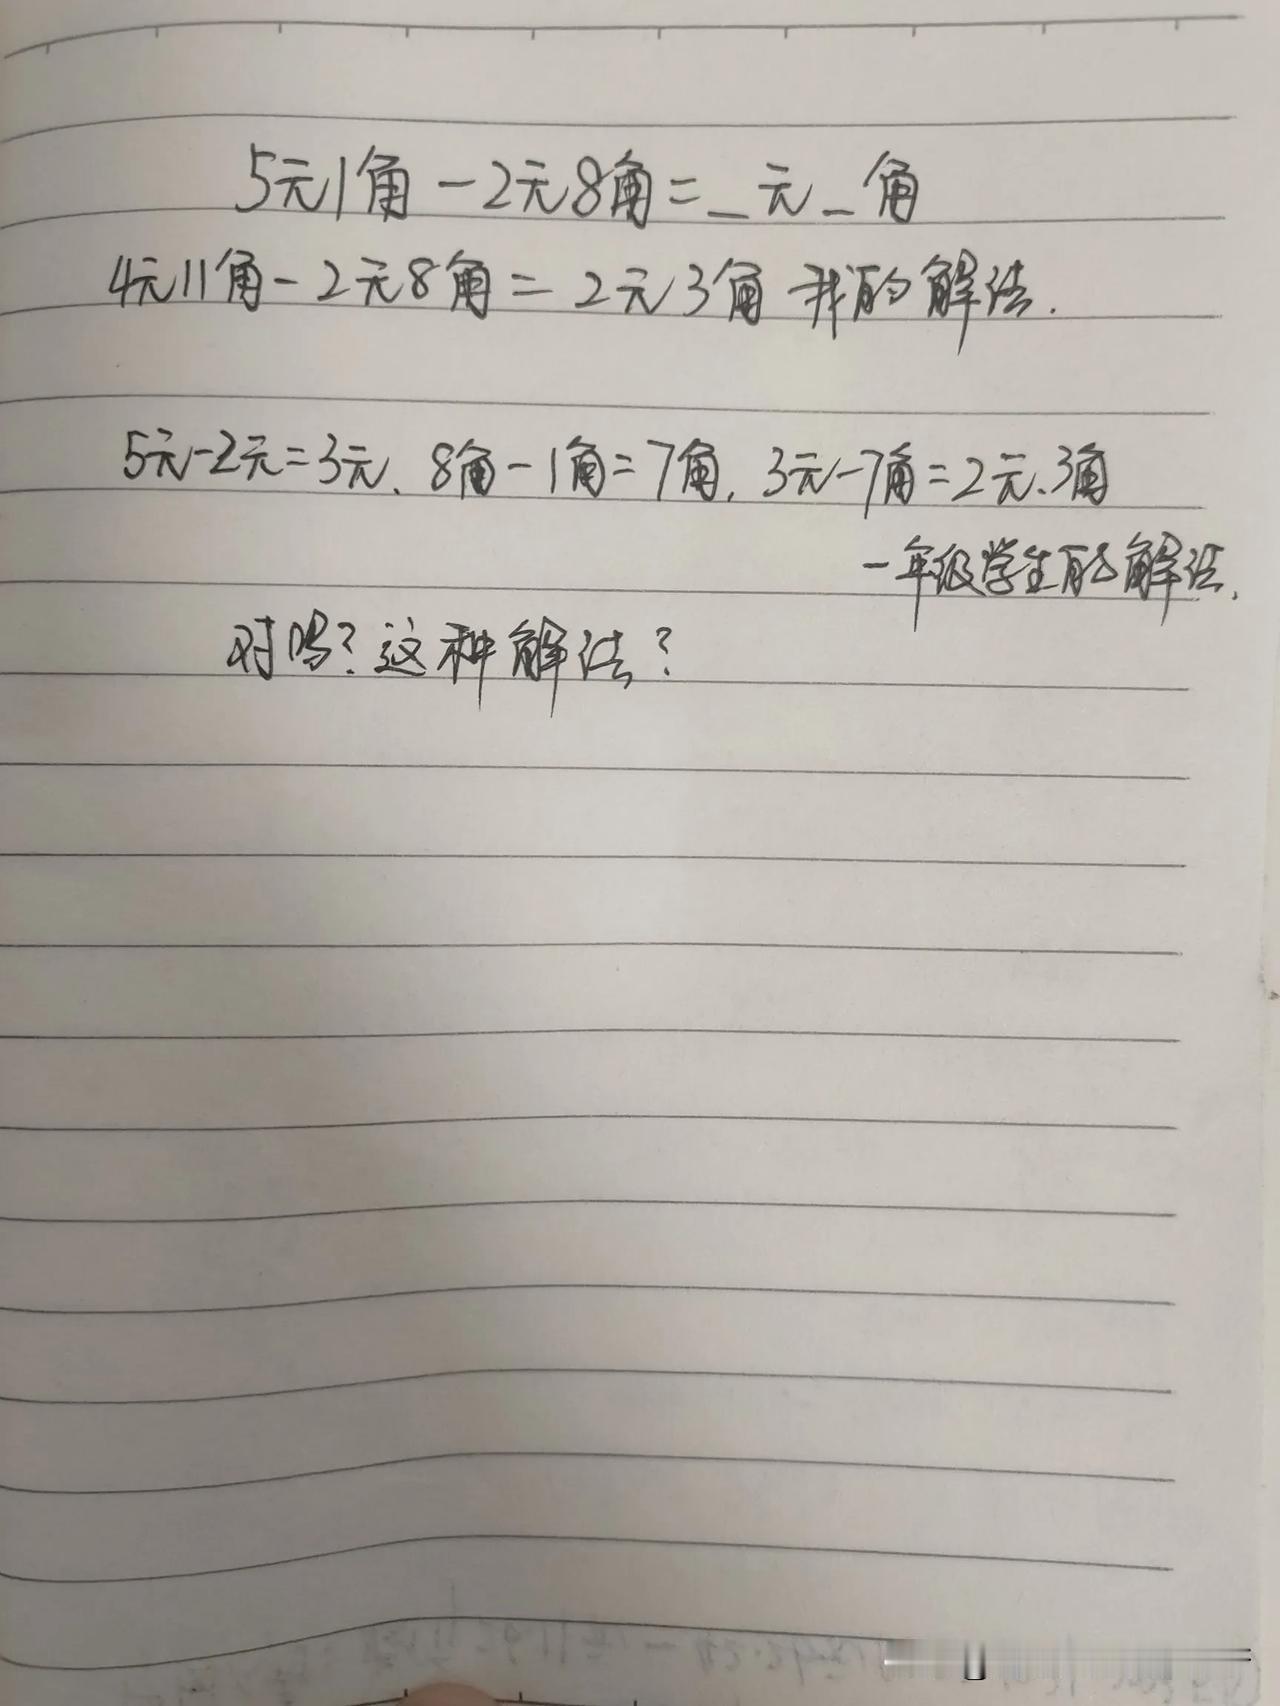 5元1角-2元8角=_元_角
4元11角-2元8角=2元3角 我的解法.
5元-2元=3元、8角-1角=7角, 3元-7角=2元、3角
一年级学生的解法,
对吗?这种解法?